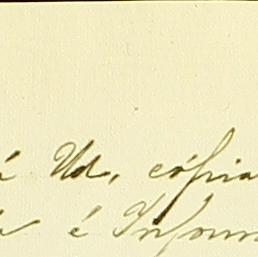 á Ud, cópia
é Inform